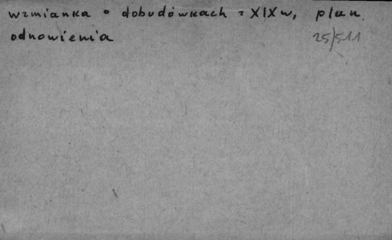 wzmianka o dobudówkach z XIX w, plan
odnowienia 25/511